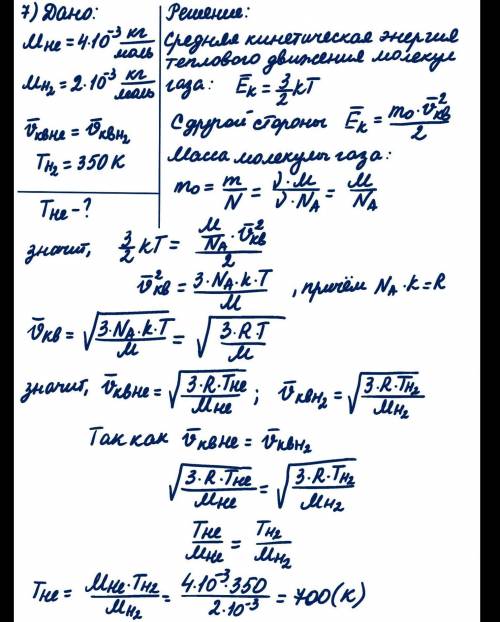 7) Дано:
Mне = 4·10⁻³ кг/моль
Mн₂ = 2·10⁻³ кг/моль
v̄квне = v̄квн₂
Tн₂ = 350 К
Tне - ?
Решение:
Средняя кинетическая энергия
теплового движения молекул
газа: Ēк = 3/2 kT
С другой стороны Ēк = m₀·v̄²кв/2
Масса молекулы газа:
m₀ = m/N = ν·M/ν·Nᴀ = M/Nᴀ
значит, 3/2 kT = M/Nᴀ·v̄²кв/2
v̄²кв = 3·Nᴀ·k·T/M , причём Nᴀ·k=R
v̄кв = √3·Nᴀ·k·T/M = √3·R·T/M
значит, v̄квне = √3·R·Tне/Mне ; v̄квн₂ = √3·R·Tн₂/Mн₂
Так как v̄квне = v̄квн₂
√3·R·Tне/Mне = √3·R·Tн₂/Mн₂
Tне/Mне = Tн₂/Mн₂
Tне = Mне·Tн₂/Mн₂ = 4·10⁻³·350/2·10⁻³ = 700(К)